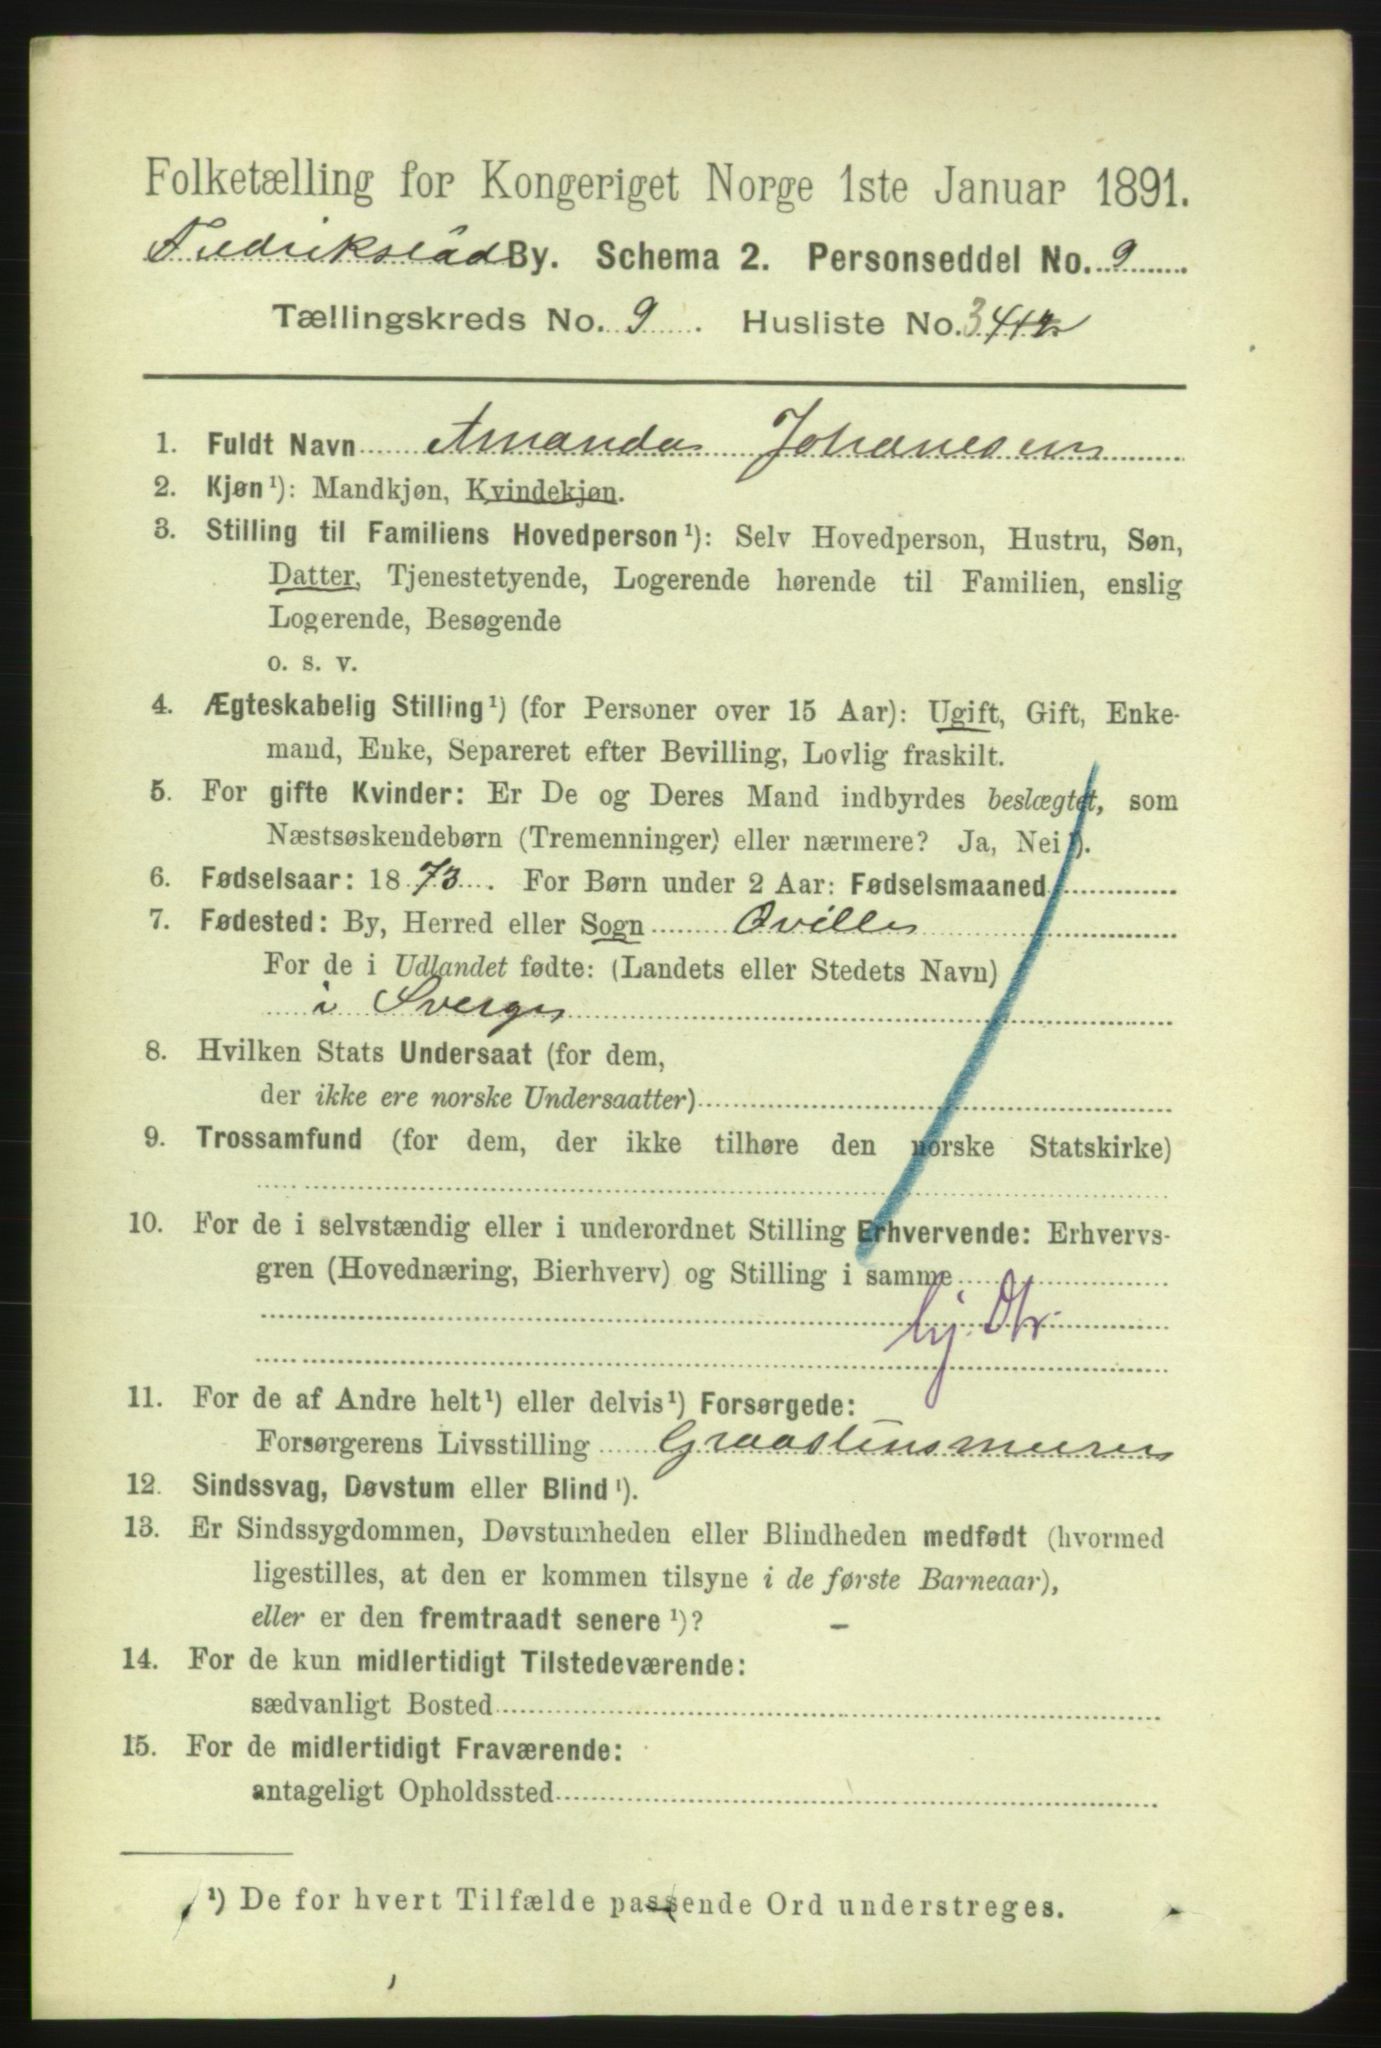 Folketælling for Kongeriget Norge 1ste Januar 1891.
Fredrikstad By. Schema 2. Personseddel No. 9
Tællingskreds No. 9. Husliste No. 3
1. Fuldt Navn Amanda Johanesen
2. Kjøn¹): Mandkjøn, Kvindekjøn.
3. Stilling til Familiens Hovedperson¹): Selv Hovedperson, Hustru, Søn,
Datter, Tjenestetyende, Logerende hørende til Familien, enslig
Logerende, Besøgende
o. s. v.
4. Ægteskabelig Stilling¹) (for Personer over 15 Aar): Ugift, Gift, Enke-
mand, Enke, Separeret efter Bevilling, Lovlig fraskilt.
5. For gifte Kvinder: Er De og Deres Mand indbyrdes beslægtet, som
Næstsøskendebørn (Tremenninger) eller nærmere? Ja, Nei¹).
6. Fødselsaar: 1873. For Børn under 2 Aar: Fødselsmaaned
7. Fødested: By, Herred eller Sogn Qville
For de i Udlandet fødte: (Landets eller Stedets Navn)
i Sverge
8. Hvilken Stats Undersaat (for dem,
der ikke ere norske Undersaatter)
9. Trossamfund (for dem, der ikke tilhøre den norske Statskirke)
10. For de i selvstændig eller i underordnet Stilling Erhvervende: Erhvervs-
gren (Hovednæring, Bierhverv) og Stilling i samme
hj. Dtr.
11. For de af Andre helt¹) eller delvis¹) Forsørgede:
Forsørgerens Livsstilling Graastensmurer
12. Sindssvag, Døvstum eller Blind¹).
13. Er Sindssygdommen, Døvstumheden eller Blindheden medfødt (hvormed
ligestilles, at den er kommen tilsyne i de første Barneaar),
eller er den fremtraadt senere¹)? –
14. For de kun midlertidigt Tilstedeværende:
sædvanligt Bosted
15. For de midlertidigt Fraværende:
antageligt Opholdssted
¹) De for hvert Tilfælde passende Ord understreges.